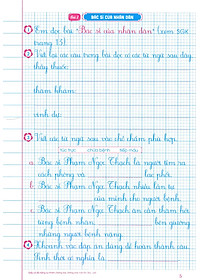 Bài 2 BÁC SĨ CỦA NHÂN DÂN
1 Em đọc bài "Bác sĩ của nhân dân" (xem SGK
trang 15)
2 Viết lại các câu trong bài đọc có các từ ngữ sau đây
thầy thuốc:
thăm khám:
vinh dự:
3 Viết các từ ngữ sau vào chỗ chấm phù hợp.
chữa bệnh
a. Bác sĩ Phạm Ngọc Thạch là người tìm ra
cách phòng và lao phổi.
b. Bác sĩ Phạm Ngọc Thạch nhiều lần tự
của mình cho người bệnh.
c. Bác sĩ Phạm Ngọc Thạch ân cần thăm hỏi
từng bệnh nhân, bên giường
những người bệnh nặng.
4 Khoanh vào đáp án đúng để hoàn thành câu.
Tình cờ có nghĩa là
5